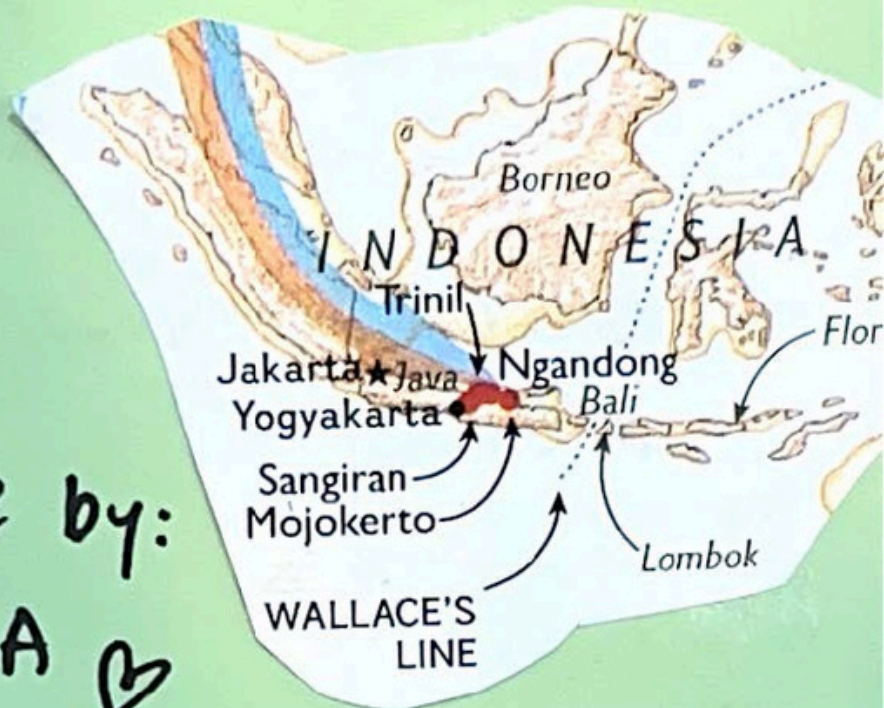 Borneo
INDONESIA
Trinil
Jakarta Java Ngandong
Yogyakarta Bali
Flor
Sangiran
Mojokerto
by:
Lombok
WALLACE'S
LINE
A